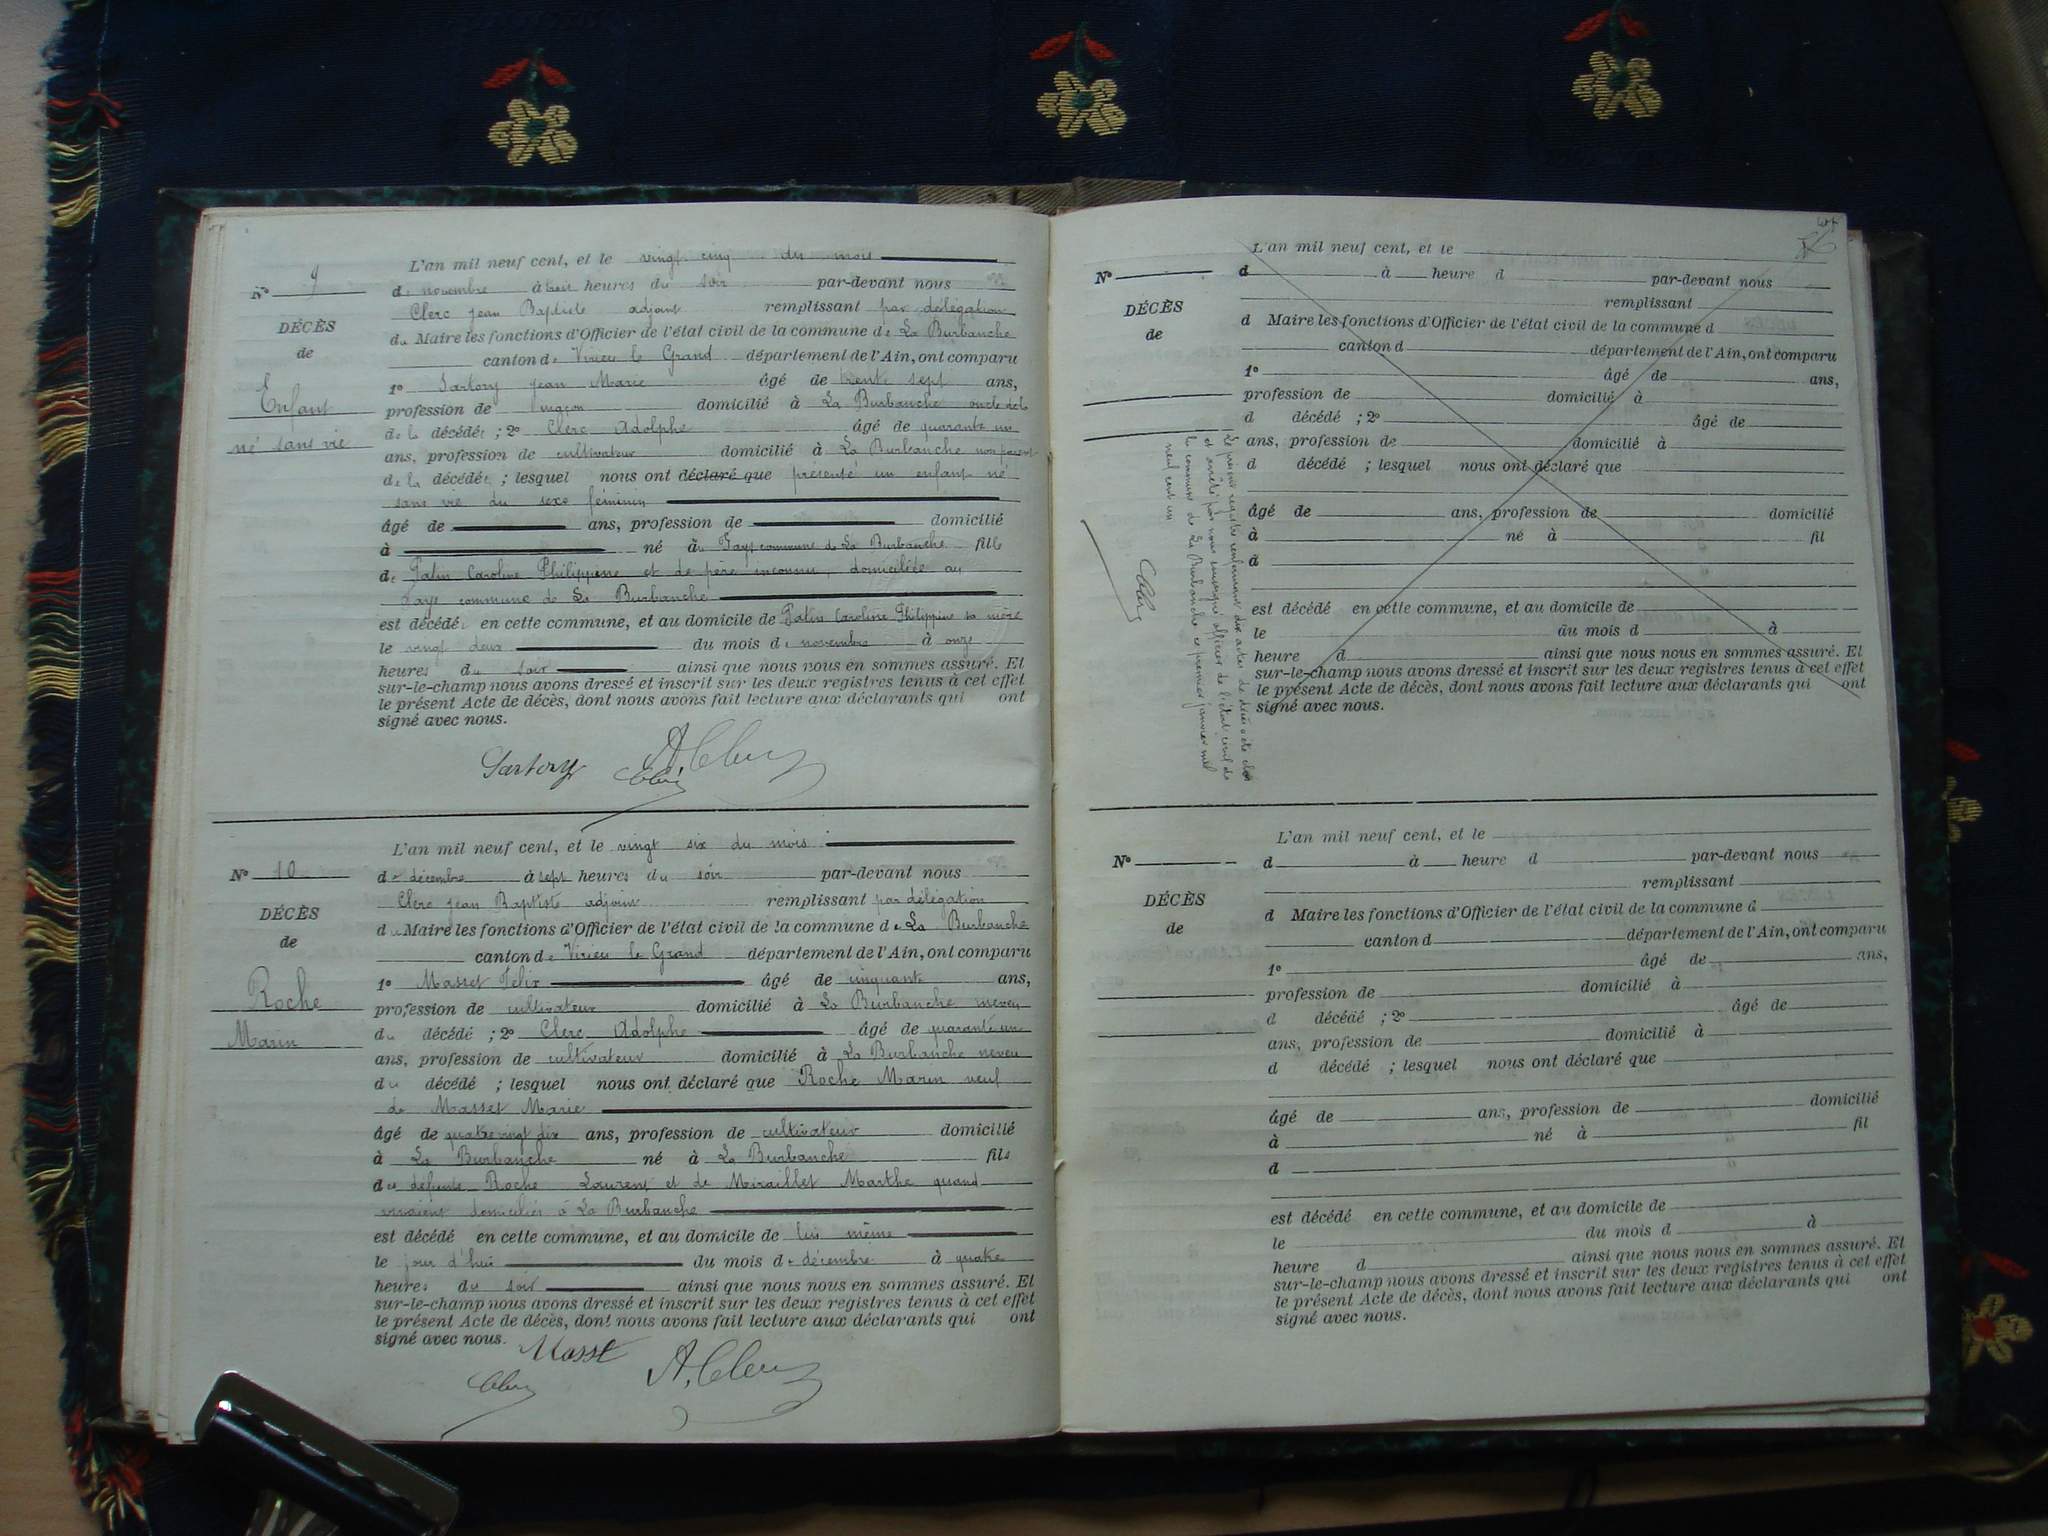 L'an mil neuf cent, et le vingt cinq du mois
N° 9
de novembre à trois heures du soir par-devant nous
Clerc Jean Baptiste adjoint remplissant par délégation
DÉCÈS
du Maire les fonctions d'Officier de l'état civil de la commune de La Burbanche
de
canton de Virieu le Grand département de l'Ain, ont comparu
1° Sartory Jean Marie âgé de trente sept ans,
Enfant
profession de maçon domicilié à La Burbanche oncle de la
de la décédée ; 2° Clerc Adolphe âgé de quarante un
né sans vie
ans, profession de cultivateur domicilié à La Burbanche non parent
de la décédée ; lesquel nous ont déclaré que présenté un enfant né
sans vie du sexe féminin
âgé de ans, profession de domicilié
à né au commune de La Burbanche fille
de Caroline Philippine et de père inconnu, domiciliée au
commune de La Burbanche
est décédée en cette commune, et au domicile de Caroline Philippine sa mère
le vingt deux du mois de novembre à onze
heures du soir ainsi que nous nous en sommes assuré. Et
sur-le-champ nous avons dressé et inscrit sur les deux registres tenus à cet effet
le présent Acte de décès, dont nous avons fait lecture aux déclarants qui ont
signé avec nous.
Sartory A. Clerc
Clerc
L'an mil neuf cent, et le vingt six du mois
N° 10
de décembre à sept heures du soir par-devant nous
Clerc Jean Baptiste adjoint remplissant par délégation
DÉCÈS
du Maire les fonctions d'Officier de l'état civil de la commune de La Burbanche
de
canton de Virieu le Grand département de l'Ain, ont comparu
1° Masset Félix âgé de cinquante ans,
Roche
profession de cultivateur domicilié à La Burbanche neveu
du décédé ; 2° Clerc Adolphe âgé de quarante un
Marin
ans, profession de cultivateur domicilié à La Burbanche neveu
du décédé ; lesquel nous ont déclaré que Roche Marin veuf
de Masset Marie
âgé de quatre vingt dix ans, profession de cultivateur domicilié
à La Burbanche né à La Burbanche fils
des défunts Roche Laurent et de Miraillet Marthe quand
vivaient domiciliés à La Burbanche
est décédé en cette commune, et au domicile de lui même
le jour d'hui du mois de décembre à quatre
heures du soir ainsi que nous nous en sommes assuré. Et
sur-le-champ nous avons dressé et inscrit sur les deux registres tenus à cet effet
le présent Acte de décès, dont nous avons fait lecture aux déclarants qui ont
signé avec nous. Masset
Clerc A. Clerc
L'an mil neuf cent, et le
N° d à heure d par-devant nous
remplissant
DÉCÈS
d Maire les fonctions d'Officier de l'état civil de la commune d
de
canton d département de l'Ain, ont comparu
1° âgé de ans,
profession de domicilié à
d décédé ; 2° âgé de
ans, profession de domicilié à
d décédé ; lesquel nous ont déclaré que
âgé de ans, profession de domicilié
à né à fil
d
est décédé en cette commune, et au domicile de
le du mois d à
heure d ainsi que nous nous en sommes assuré. Et
sur-le-champ nous avons dressé et inscrit sur les deux registres tenus à cet effet
le présent Acte de décès, dont nous avons fait lecture aux déclarants qui ont
signé avec nous.
Le présent registre renfermant dix actes de décès a été clos
et arrêté par nous soussigné officier de l'état civil de
la commune de La Burbanche ce premier janvier mil
neuf cent un
Clerc
L'an mil neuf cent, et le
N° d à heure d par-devant nous
remplissant
DÉCÈS
d Maire les fonctions d'Officier de l'état civil de la commune d
de
canton d département de l'Ain, ont comparu
1° âgé de ans,
profession de domicilié à
d décédé ; 2° âgé de
ans, profession de domicilié à
d décédé ; lesquel nous ont déclaré que
âgé de ans, profession de domicilié
à né à fil
d
est décédé en cette commune, et au domicile de
le du mois d à
heure d ainsi que nous nous en sommes assuré. Et
sur-le-champ nous avons dressé et inscrit sur les deux registres tenus à cet effet
le présent Acte de décès, dont nous avons fait lecture aux déclarants qui ont
signé avec nous.